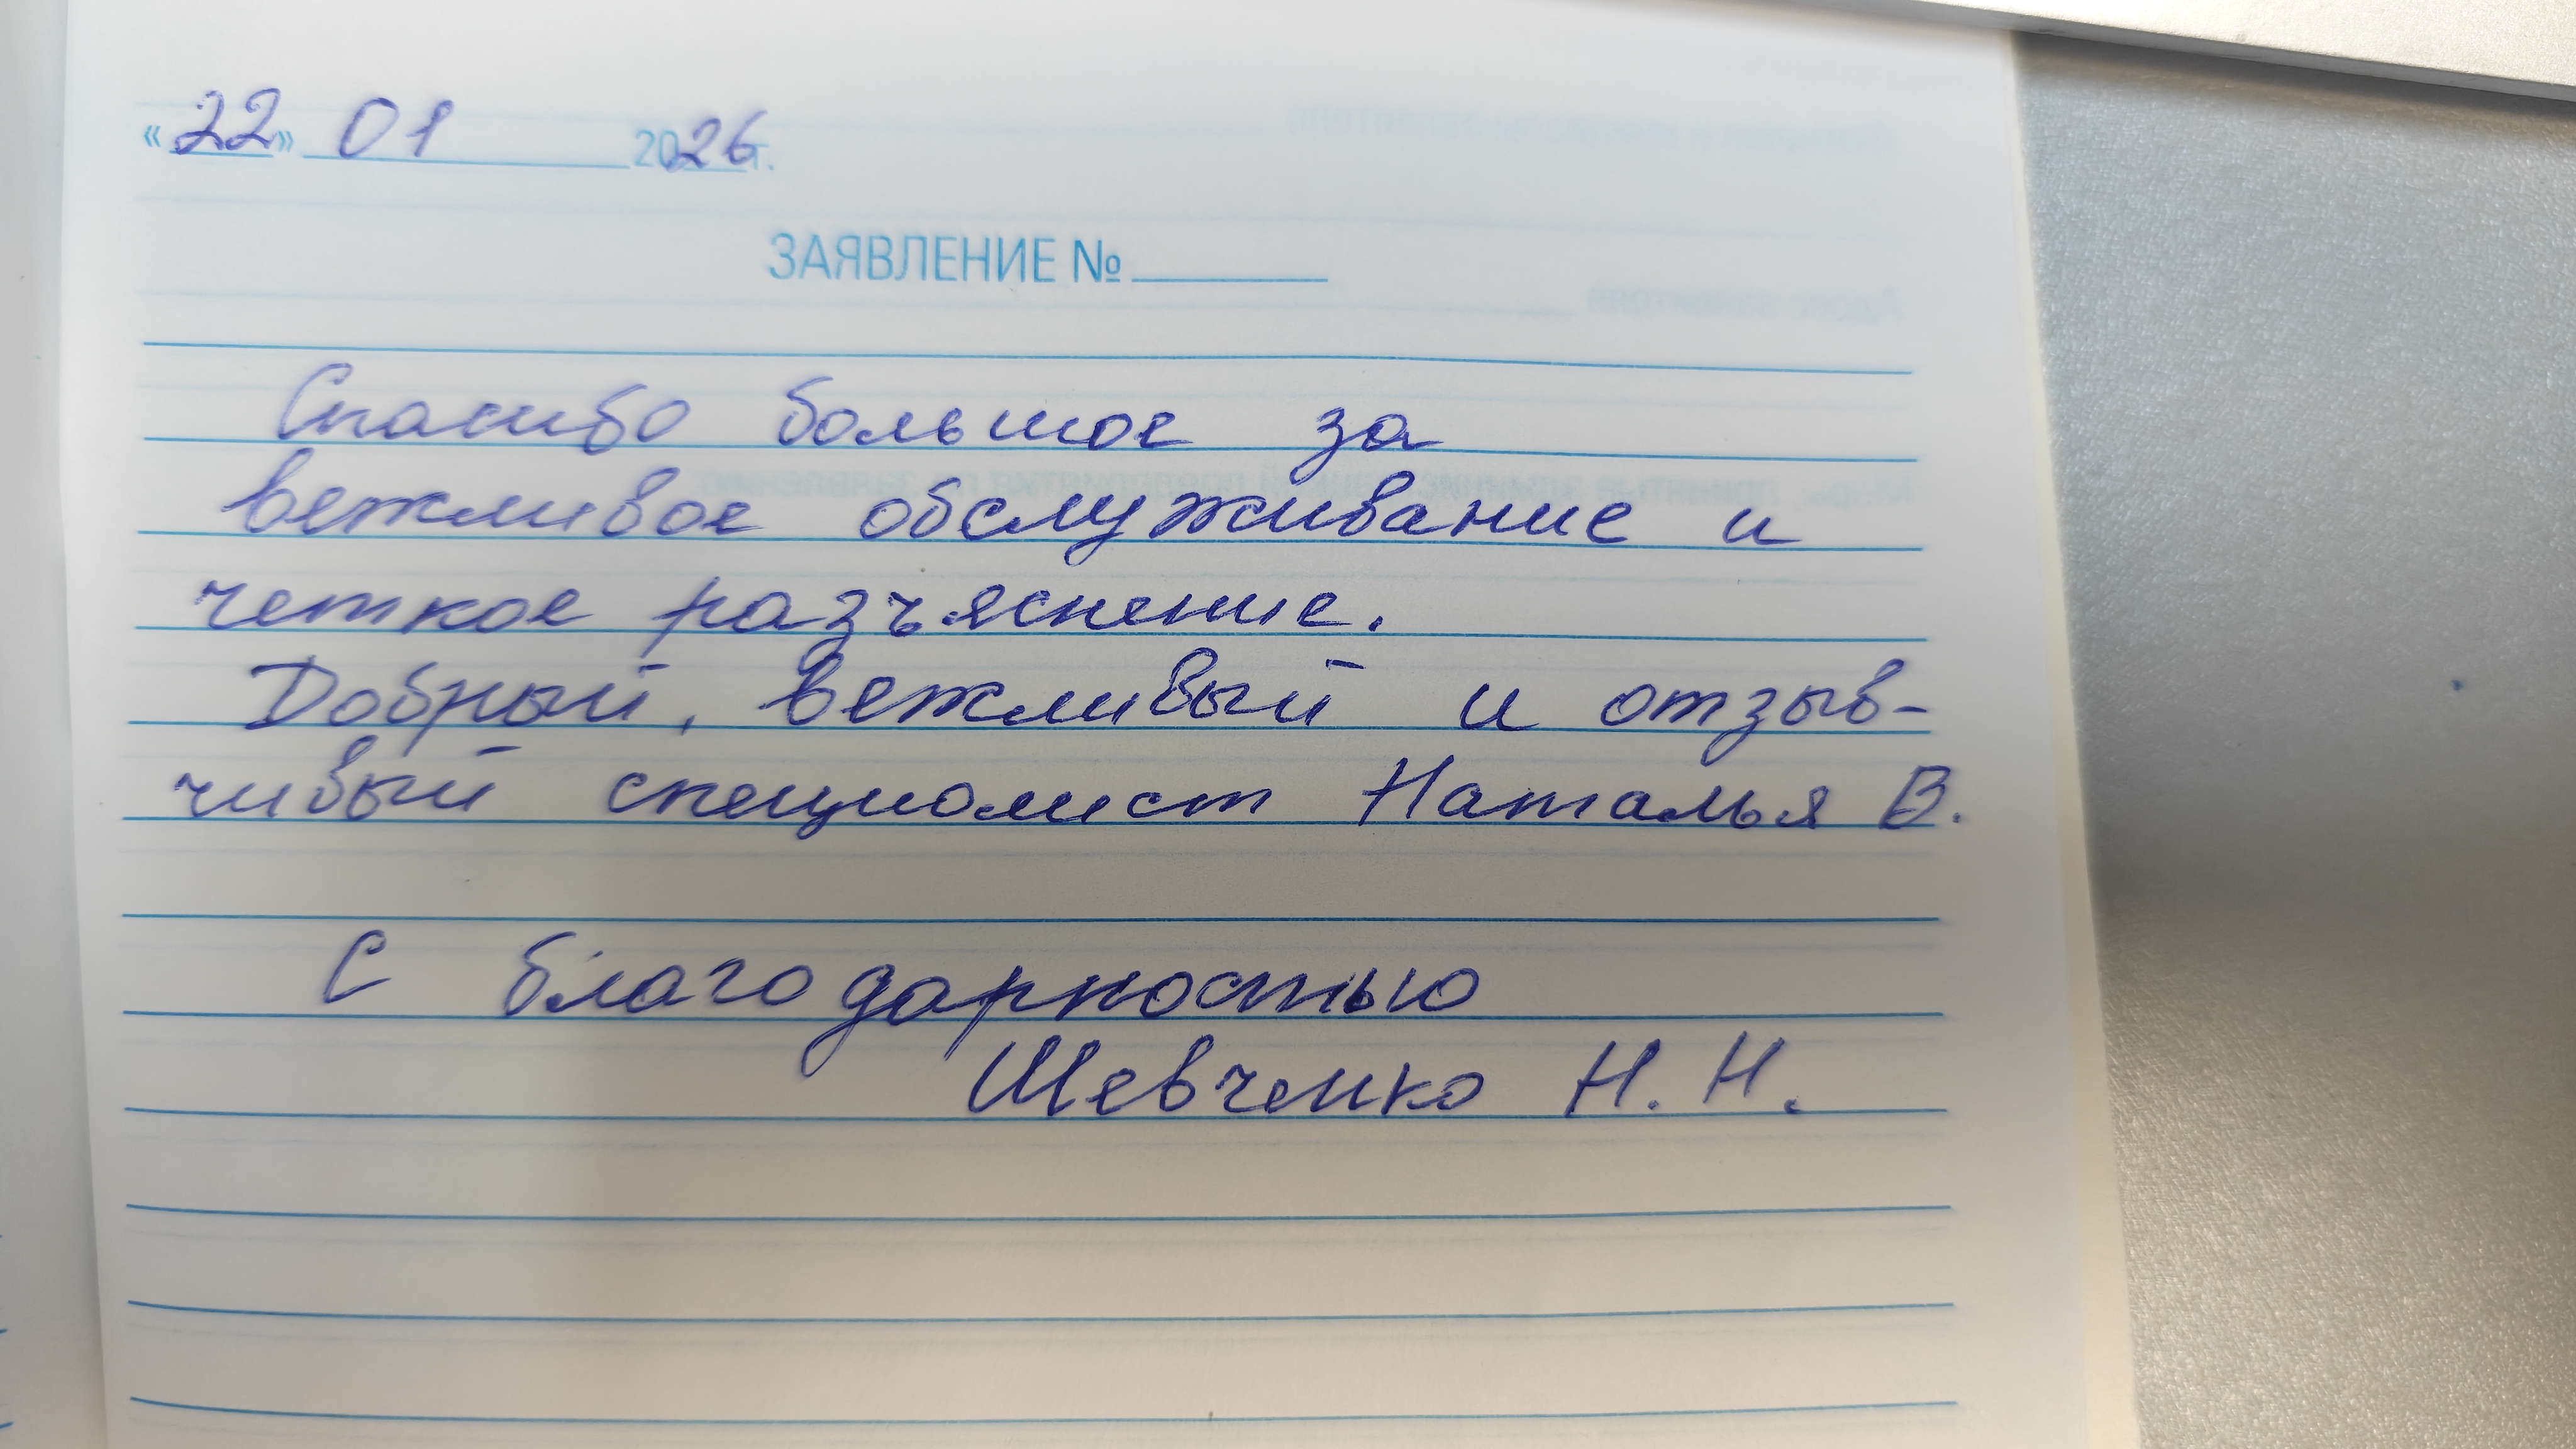 «22» 01 2026г.
ЗАЯВЛЕНИЕ №
Спасибо большое за
вежливое обслуживание и
четкое разъяснение.
Добрый, вежливый и отзыв-
чивый специалист Наталья В.
С благодарностью
Шевченко Н. Н.